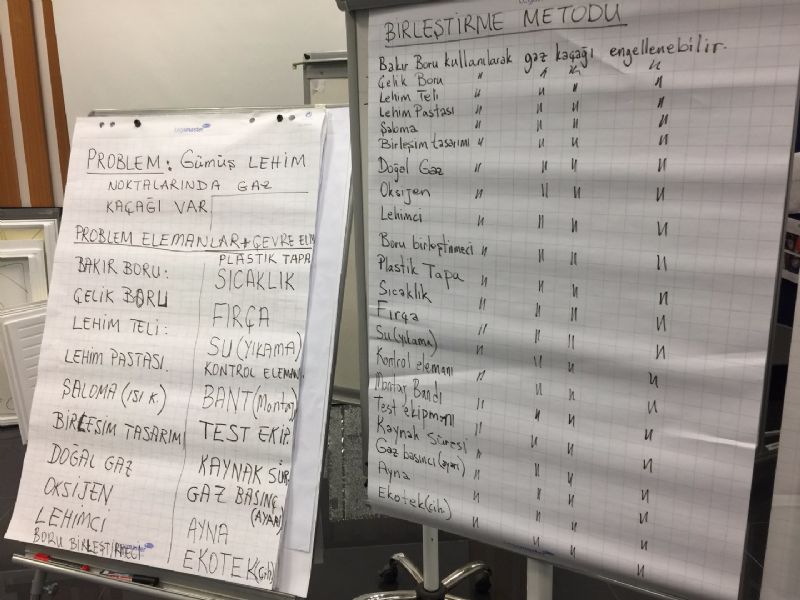 PROBLEM: GÜMÜŞ LEHİM
NOKTALARINDA GAZ
KAÇAĞI VAR
PROBLEM ELEMANLAR + ÇEVRE ELM
BAKIR BORU:
ÇELİK BORU
LEHİM TELİ:
LEHİM PASTASI.
ŞALOMA (ISI K.)
BİRLEŞİM TASARIMI
DOĞAL GAZ
OKSİJEN
LEHİMCİ
BORU BİRLEŞTİRMECİ
PLASTİK TAPA
SICAKLIK
FIRÇA
SU (YIKAMA)
KONTROL ELEMAN
BANT (Montaj)
TEST EKİP.
KAYNAK SÜR
GAZ BASINÇ
(AYARI)
AYNA
EKOTEK (çih)
BİRLEŞTİRME METODU
Bakır Boru kullanılarak gaz kaçağı engellenebilir.
Çelik Boru " " " "
Lehim Teli " " " "
Lehim Pastası " " " "
Şaloma " " " "
Birleşim tasarımı " " " "
Doğal Gaz " " " "
Oksijen " " " "
Lehimci " " " "
Boru birleştirmeci " " " "
Plastik Tapa " " " "
Sıcaklık " " " "
Fırça " " " "
Su (yıkama) " " " "
Kontrol elemanı " " " "
Montaj Bandı " " " "
Test ekipmanı " " " "
Kaynak Süresi " " " "
Gaz basıncı (ayarı) " " " "
Ayna " " " "
Ekotek (çih) " " " "